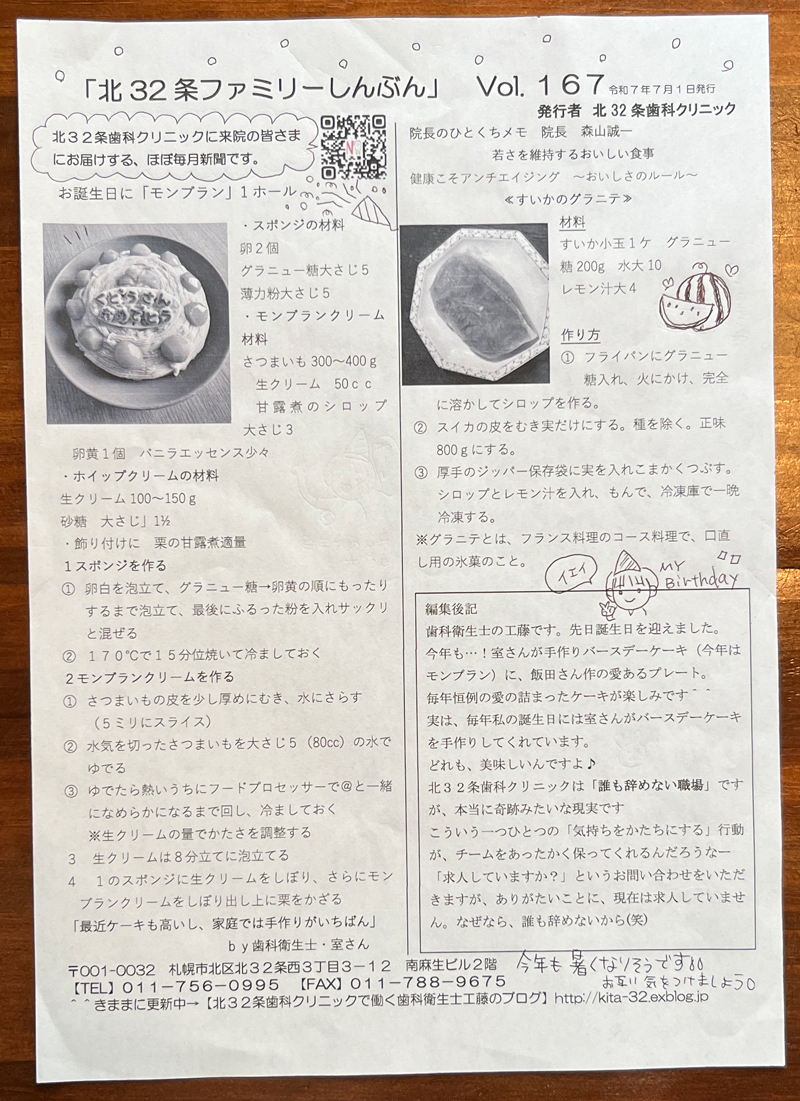 「北32条ファミリーしんぶん」 Vol.167 令和7年7月1日発行
発行者 北32条歯科クリニック
北32条歯科クリニックに来院の皆さま
にお届けする、ほぼ毎月新聞です。
お誕生日に「モンブラン」1ホール
・スポンジの材料
卵2個
グラニュー糖大さじ5
薄力粉大さじ5
・モンブランクリーム
材料
さつまいも300〜400g
生クリーム 50cc
甘露煮のシロップ
大さじ3
卵黄1個 バニラエッセンス少々
・ホイップクリームの材料
生クリーム100〜150g
砂糖 大さじ」1½
・飾り付けに 栗の甘露煮適量
1スポンジを作る
① 卵白を泡立て、グラニュー糖→卵黄の順にもったり
するまで泡立て、最後にふるった粉を入れサックリ
と混ぜる
② 170℃で15分位焼いて冷ましておく
2モンブランクリームを作る
① さつまいもの皮を少し厚めにむき、水にさらす
(5ミリにスライス)
② 水気を切ったさつまいもを大さじ5(80cc)の水で
ゆでる
③ ゆでたら熱いうちにフードプロセッサーで@と一緒
になめらかになるまで回し、冷ましておく
※生クリームの量でかたさを調整する
3 生クリームは8分立てに泡立てる
4 1のスポンジに生クリームをしぼり、さらにモン
ブランクリームをしぼり出し上に栗をかざる
「最近ケーキも高いし、家庭では手作りがいちばん」
by歯科衛生士・室さん
院長のひとくちメモ 院長 森山誠一
若さを維持するおいしい食事
健康こそアンチエイジング 〜おいしさのルール〜
≪すいかのグラニテ≫
材料
すいか小玉1ケ グラニュー
糖200g 水大10
レモン汁大4
作り方
① フライパンにグラニュー
糖入れ、火にかけ、完全
に溶かしてシロップを作る。
② スイカの皮をむき実だけにする。種を除く。正味
800gにする。
③ 厚手のジッパー保存袋に実を入れこまかくつぶす。
シロップとレモン汁を入れ、もんで、冷凍庫で一晩
冷凍する。
※グラニテとは、フランス料理のコース料理で、口直
し用の氷菓のこと。
イエイ
MY
Birthday
編集後記
歯科衛生士の工藤です。先日誕生日を迎えました。
今年も…！室さんが手作りバースデーケーキ(今年は
モンブラン)に、飯田さん作の愛あるプレート。
毎年恒例の愛の詰まったケーキが楽しみです＾＾
実は、毎年私の誕生日には室さんがバースデーケーキ
を手作りしてくれています。
どれも、美味しいんですよ♪
北32条歯科クリニックは「誰も辞めない職場」です
が、本当に奇跡みたいな現実です
こういう一つひとつの「気持ちをかたちにする」行動
が、チームをあったかく保ってくれるんだろうなー
「求人していますか？」というお問い合わせをいただ
きますが、ありがたいことに、現在は求人していませ
ん。なぜなら、誰も辞めないから(笑)
今年も暑くなりそうです
お互い気をつけましょう
〒001-0032 札幌市北区北32条西3丁目3－12 南麻生ビル2階
【TEL】011-756-0995 【FAX】011-788-9675
＾＾きままに更新中→【北32条歯科クリニックで働く歯科衛生士工藤のブログ】http://kita-32.exblog.jp